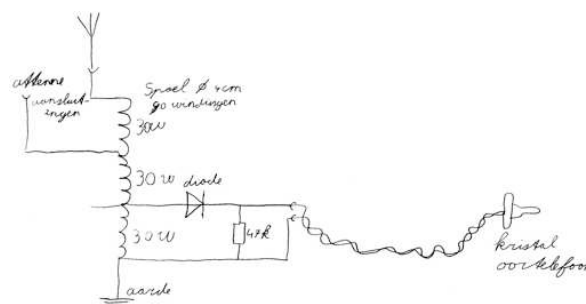 attenne
aansluit-
ingen
Spoel Ø 4cm
90 windingen
30w
30w
diode
30w
47k
kristal
oortelefoon
aarde